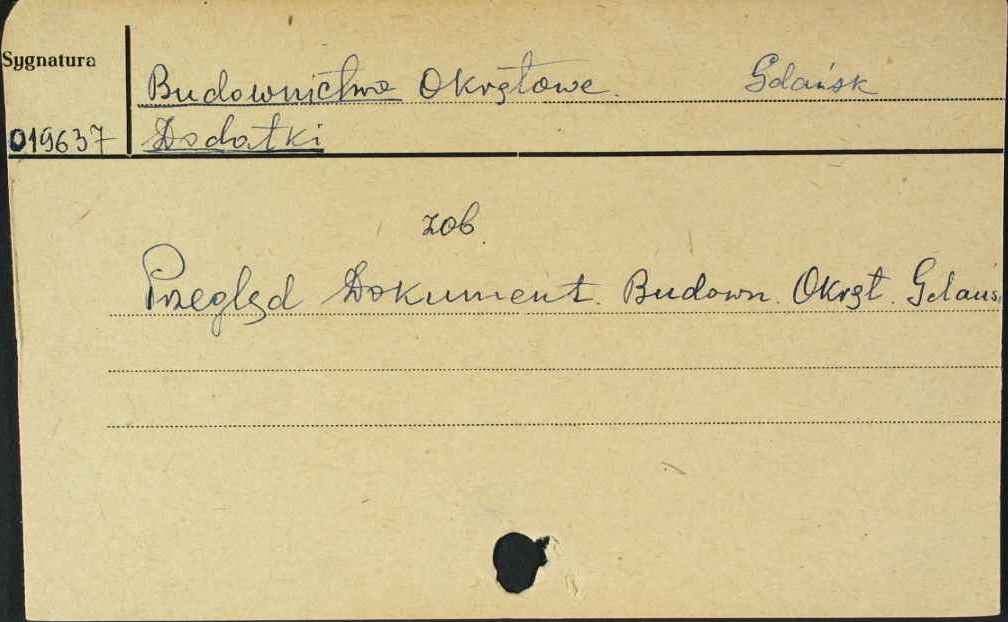 Sygnatura
Budownictwo Okrętowe. Gdańsk
019637 Dodatki
zob.
Przegląd Dokument. Budown. Okręt. Gdańs